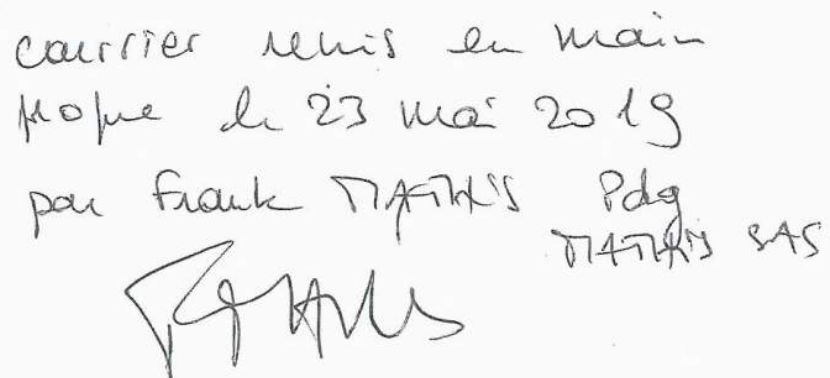 courrier remis en main
propre le 23 mai 2019
par Frank MATHIS Pdg
MATHIS SAS